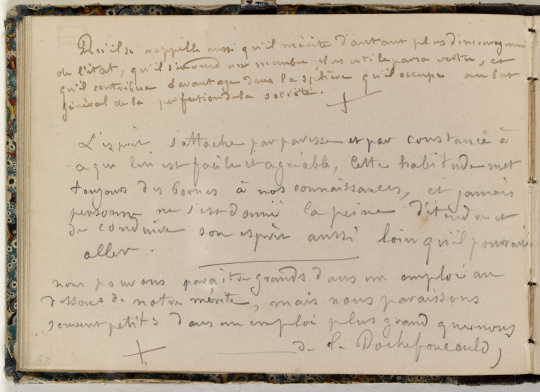 Qu'il se rappelle aussi qu'il mérite d'autant plus
de l'état, qu'il s'en rend un membre plus utile par sa vertu, et
qu'il contribue davantage dans la sphère qu'il occupe au but
général de la perfection de la société.
L'esprit s'attache par paresse et par constance à
ce qui lui est facile et agréable, cette habitude met
toujours des bornes à nos connaissances, et jamais
personne ne s'est donné la peine d'étendre et
de conduire son esprit aussi loin qu'il pourrait
aller.
nous pouvons paraître grands dans un emploi au
dessous de notre mérite, mais nous paraissons
souvent petits dans un emploi plus grand que nous
de la Rochefoucauld